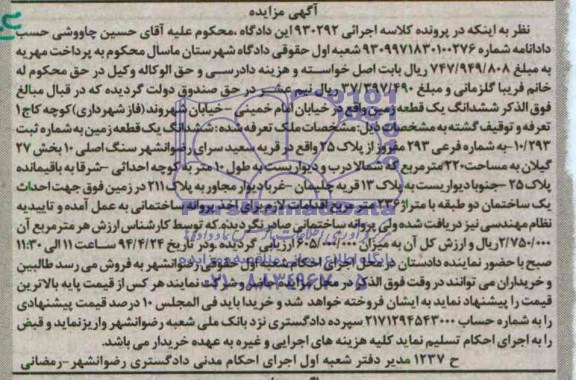 آگهی مزایده
نظر به اینکه در پرونده کلاسه اجرائی ۹۳۰۲۹۲ این دادگاه ،محکوم علیه آقای حسین چاووشی حسب
دادنامه شماره ۹۳۰۹۹۷۱۸۳۰۱۰۰۲۷۶ شعبه اول حقوقی دادگاه شهرستان ماسال محکوم به پرداخت مهریه
به مبلغ ۷۴۷/۹۴۹/۸۰۸ ریال بابت اصل خواسته و هزینه دادرسی و حق الوکاله وکیل در حق محکوم له
خانم فریبا گلزمانی و مبلغ ۳۷/۳۹۷/۴۹۰ ریال نیم عشر در حق صندوق دولت گردیده که در قبال مبالغ
فوق الذکر ششدانگ یک قطعه زمین واقع در خیابان امام خمینی - خیابان شهروند (فاز شهرداری) کوچه کاج ۱
تعرفه و توقیف گشته به مشخصات ذیل: مشخصات ملک تعرفه شده: ششدانگ یک قطعه زمین به شماره ثبت
۱۰/۲۹۳- به شماره فرعی ۲۹۳ مفروز از پلاک ۲۵ واقع در قریه سعید سرای رضوانشهر سنگ اصلی ۱۰ بخش ۲۷
گیلان به مساحت ۲۲۰ مترمربع که شمالا درب و دیواریست به طول ۱۰ متر به کوچه احداثی - شرقا به باقیمانده
پلاک ۲۵ - جنوبا دیواریست به پلاک ۱۳ قریه چلیمان - غربا دیوار مجاور به پلاک ۲۱۱ در زمین فوق جهت احداث
یک ساختمان دو طبقه با متراژ ۲۳۶ متر مربع اقدامات لازم برای اخذ پروانه ساختمانی به عمل آمده و تاییدیه
نظام مهندسی نیز دریافت شده ولی پروانه ساختمانی صادر نگردیده که توسط کارشناس ارزش هر متر مربع آن
۲/۷۵۰/۰۰۰ ریال و ارزش کل آن به میزان ۶۰۵/۰۰۰/۰۰۰ ارزیابی گردیده .ودر تاریخ ۹۴/۴/۲۴ ساعت ۱۱ الی ۱۱:۳۰
صبح با حضور نماینده دادستان در محل اجرای احکام شعبه اول حقوقی رضوانشهر به فروش می رسد طالبین
و خریداران می توانند در وقت فوق الذکر در محل مزایده حاضر و شرکت نمایند هر کس از قیمت پایه بالاترین
قیمت را پیشنهاد نماید به ایشان فروخته خواهد شد و خریدار باید فی المجلس ۱۰ درصد قیمت پیشنهادی
را به شماره حساب ۲۱۷۱۲۹۴۵۴۳۰۰۰ سپرده دادگستری نزد بانک ملی شعبه رضوانشهر واریز نماید و قبض
را به اجرای احکام تسلیم نماید کلیه هزینه های اجرایی و غیره به عهده خریدار می باشد.
ح ۱۲۳۷ مدیر دفتر شعبه اول اجرای احکام مدنی دادگستری رضوانشهر - رمضانی